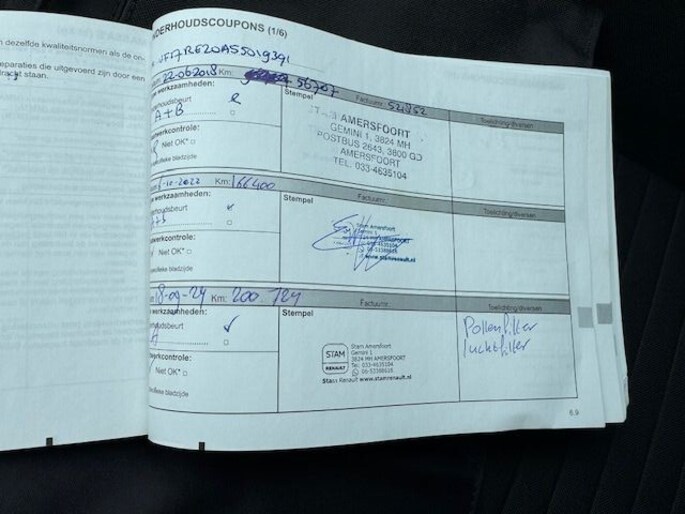 n dezelfde kwaliteitsnormen als de on-
eparaties die uitgevoerd zijn door een
dracht staan.
NDERHOUDSCOUPONS (1/6)
VF17RE20A55019391
22-06-2018 Km: 56707
werkzaamheden:
houdsbeurt
A+B
werkcontrole:
Net OK*
specifieke bladzijde
Stempel
Factuurnr.: 521852
Toelichting/diversen
AMERSFOORT
GEMINI 1, 3824 MH
POSTBUS 2643, 3800 GD
AMERSFOORT
TEL. 033-4635104
-10-2022 Km: 166400
werkzaamheden:
houdsbeurt
A+b
werkcontrole:
Net OK*
ecifieke bladzijde
Stempel
Factuurnr.
Toelichting/diversen
Stam Amersfoort
Gemini 1
www.stamrenault.nl
18-09-24 Km: 200.724
werkzaamheden:
houdsbeurt
A
werkcontrole:
Net OK*
ecifieke bladzijde
Stempel
Factuurnr.
Toelichting/diversen
STAM
RENAULT
Stam Amersfoort
Gemini 1
3824 MH AMERSFOORT
Tel: 033-4635104
06-53388626
Stam Renault www.stamrenault.nl
Pollenfilter
luchtfilter
6.9